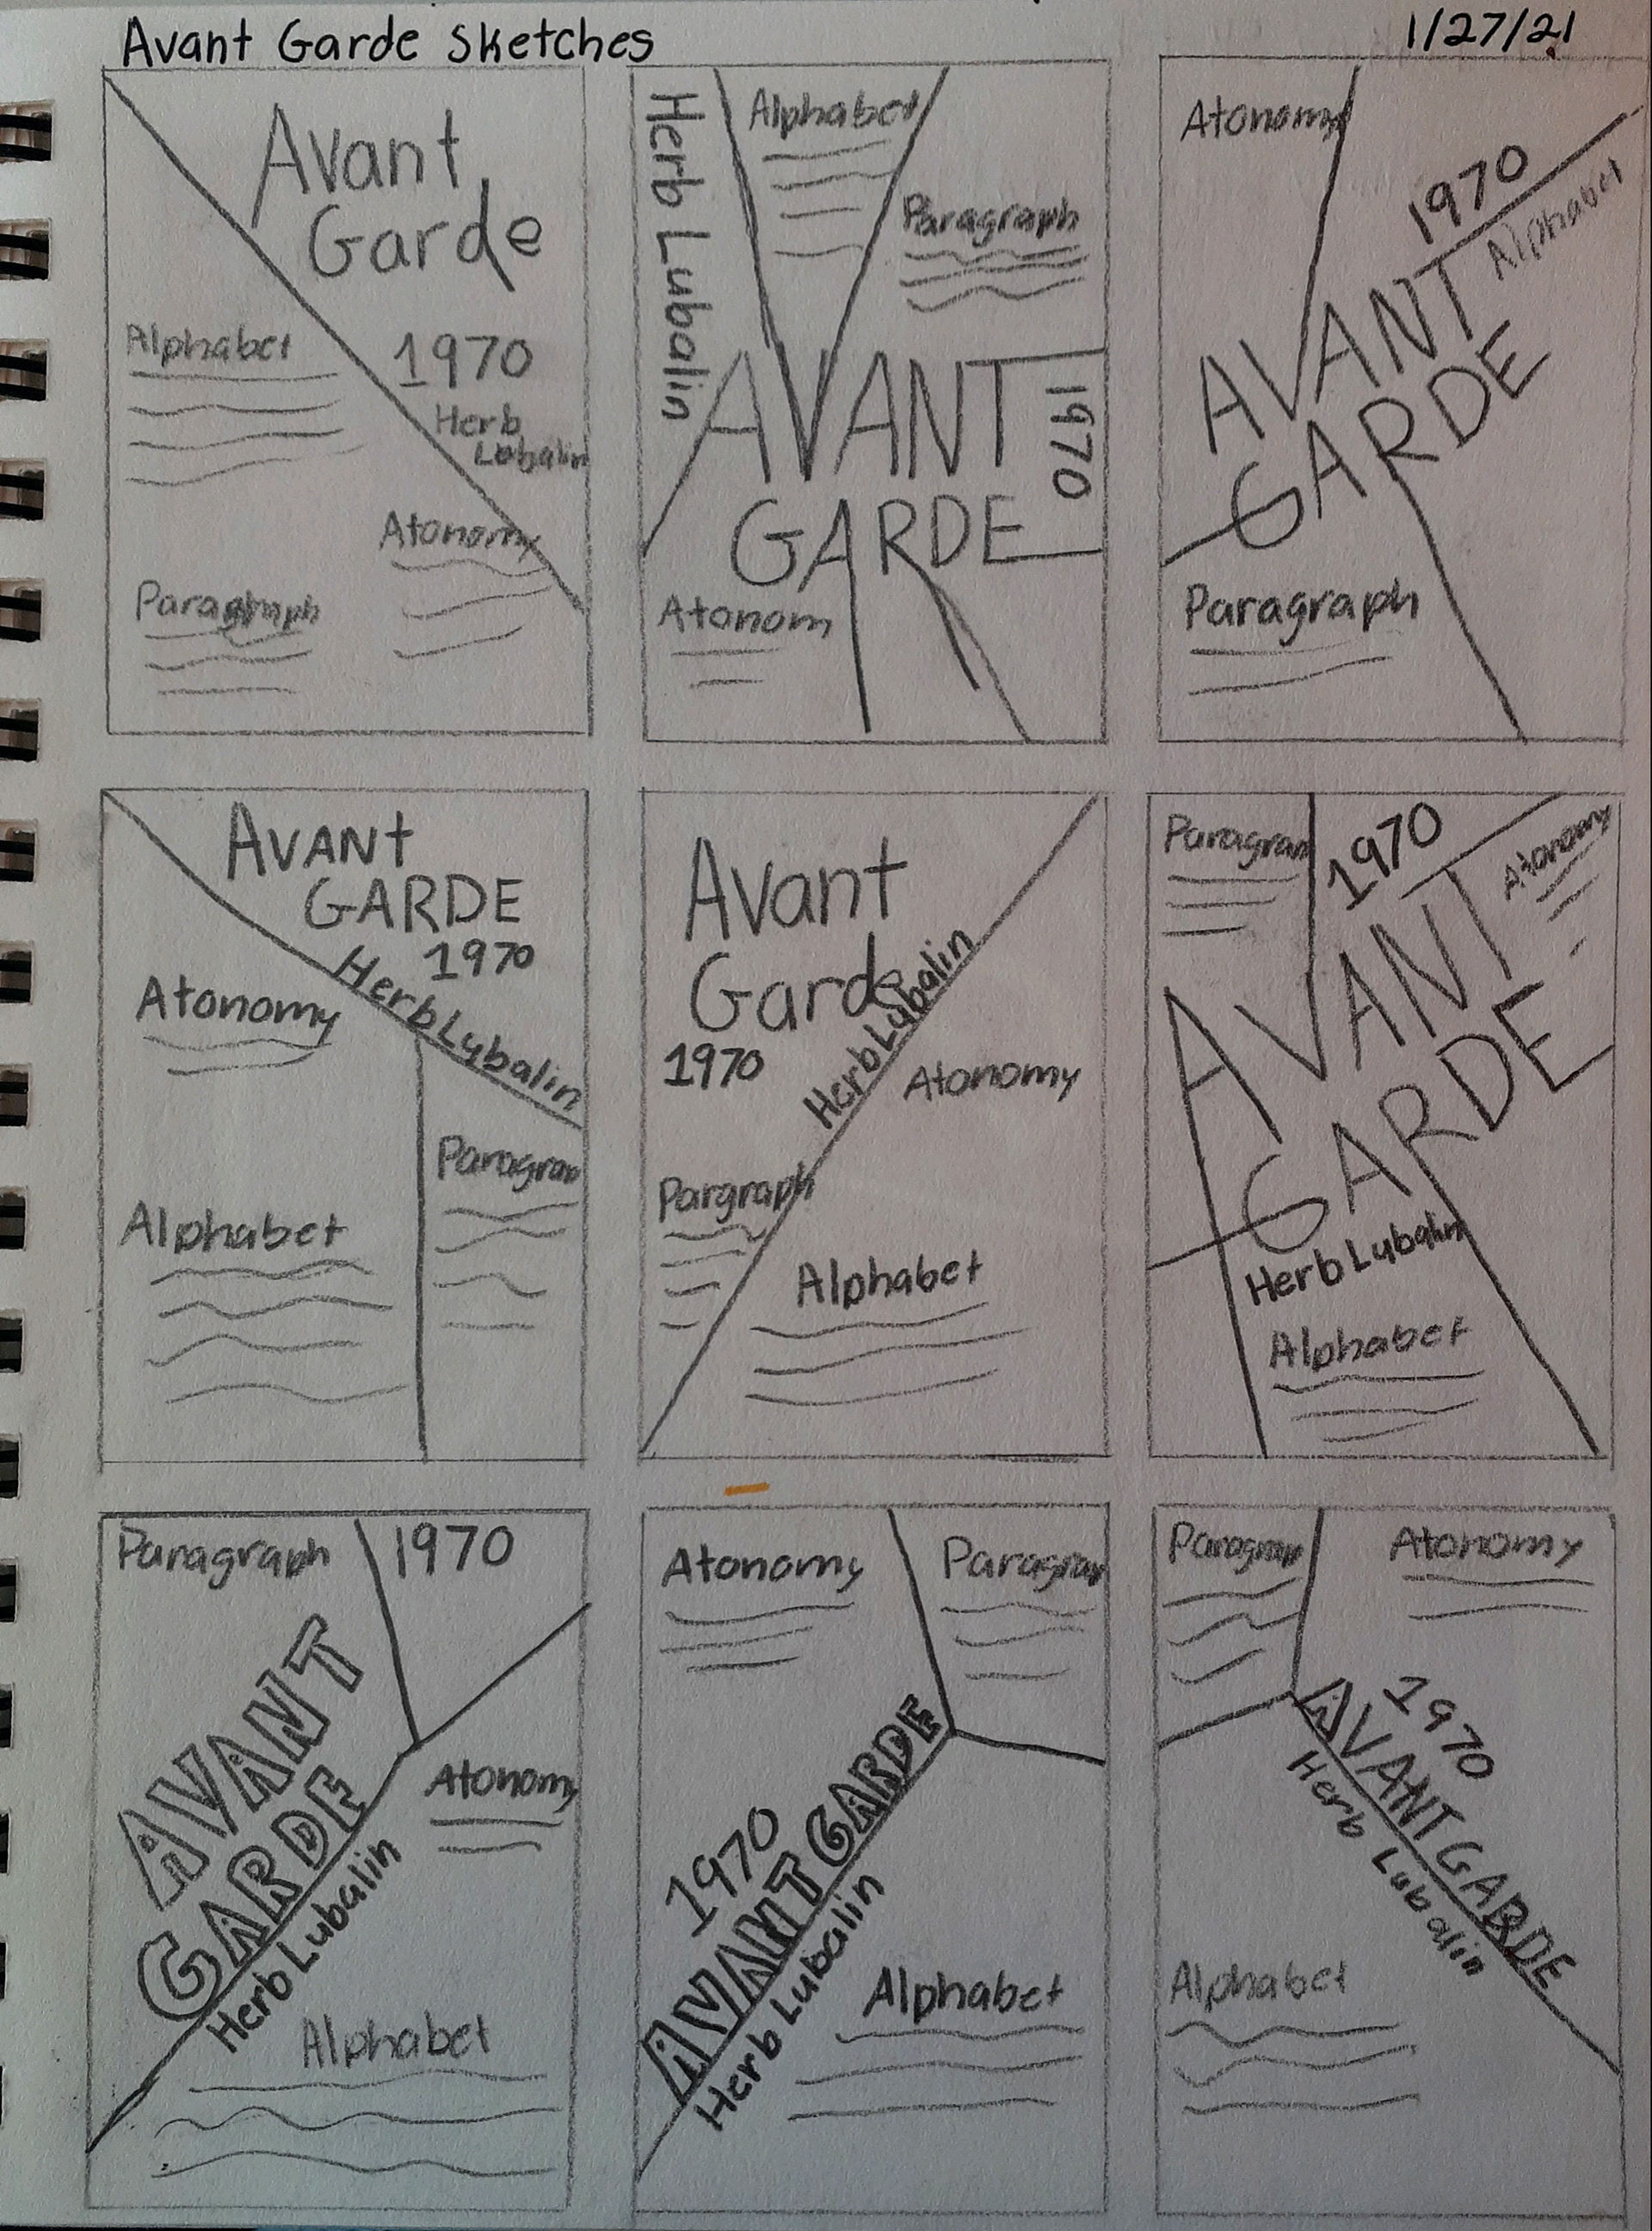 Avant Garde Sketches
1/27/21
Avant
Garde
Alphabet
1970
Herb
Lubalin
Atonomy
Paragraph
Herb Lubalin
Alphabet
Paragraph
AVANT
1970
GARDE
Atonom
Atonomy
1970
Alphabet
AVANT
GARDE
Paragraph
AVANt
GARDE
1970
Herb Lubalin
Atonomy
Paragrap
Alphabet
Avant
Garde
Herb Lubalin
1970
Atonomy
Pargraph
Alphabet
Paragrap
1970
Atonomy
AVANT
GARDE
Herb Lubalin
Alphabet
Paragraph
1970
AVANT
GARDE
Herb Lubalin
Atonomy
Alphabet
Atonomy
Paragrap
1970
AVANT GARDE
Herb Lubalin
Alphabet
Paragrap
Atonomy
1970
AVANT GARDE
Herb Lubalin
Alphabet